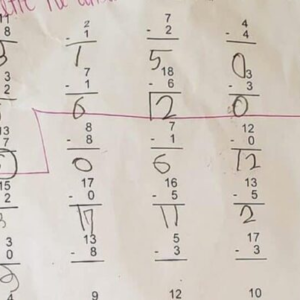 8 2 7 4
- 1 - 2 - 4
1 5 0
3 7 18 3
2 - 1 - 6 - 3
6 12 0
13 8 7 12
7 - 8 - 1 - 0
0 6 12
15 17 16 13
2 - 0 - 5 - 5
17 11 2
3 13 5 17
0 - 8 - 3 - 3
4 9 12 10